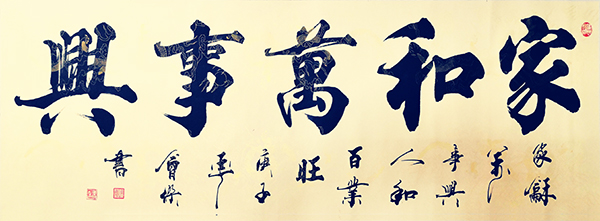 家和萬事興
家龢
萬
事興
人和
百業
旺
庚子
會
書